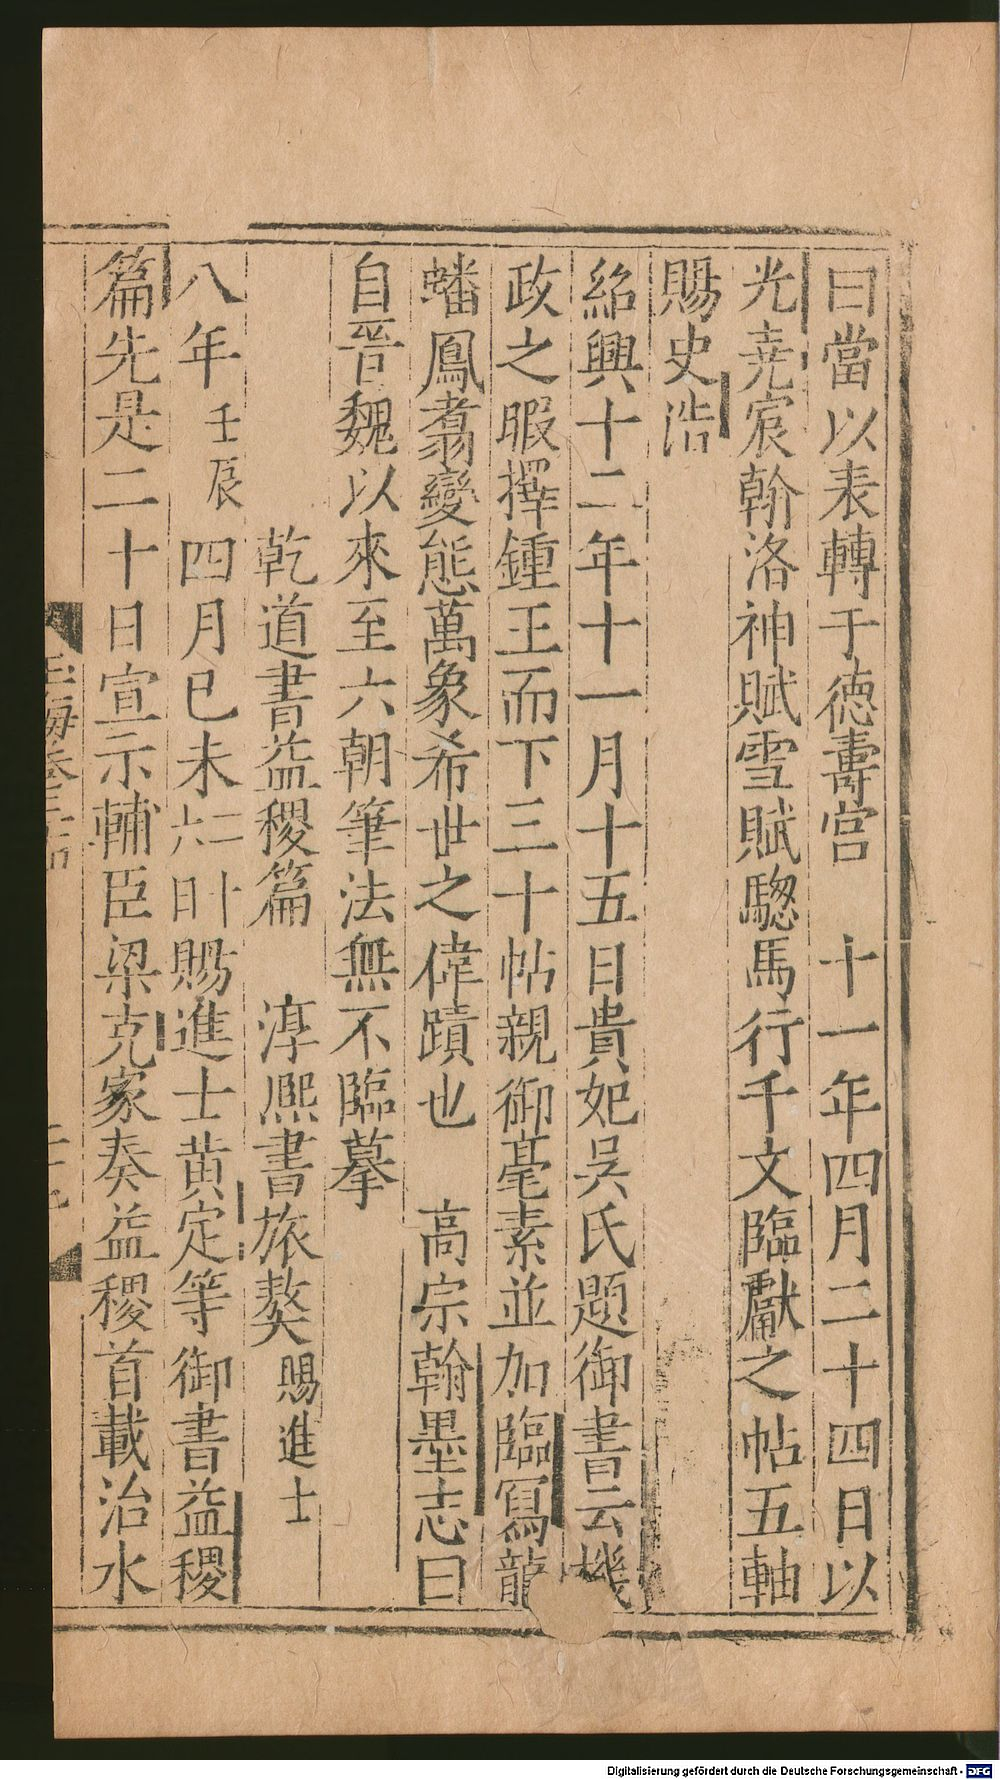 曰當以表轉于德壽宫　十一年四月二十四日以
光堯宸翰洛神賦雪賦驄馬行千文臨獻之帖五軸
賜史浩
紹興十二年十一月十五日貴妃吳氏題御書云機
政之暇擇鍾王而下三十帖親御毫素並加臨寫龍
蟠鳳翥變態萬象希世之偉蹟也　高宗翰墨志曰
自晉魏以來至六朝筆法無不臨摹
乾道書益稷篇　淳熙書旅獒賜進士
八年壬辰四月已未二十六日賜進士黄定等御書益稷
篇先是二十日宣示輔臣梁克家奏益稷首載治水
玉海卷三十四
Digitalisierung gefördert durch die Deutsche Forschungsgemeinschaft - DFG